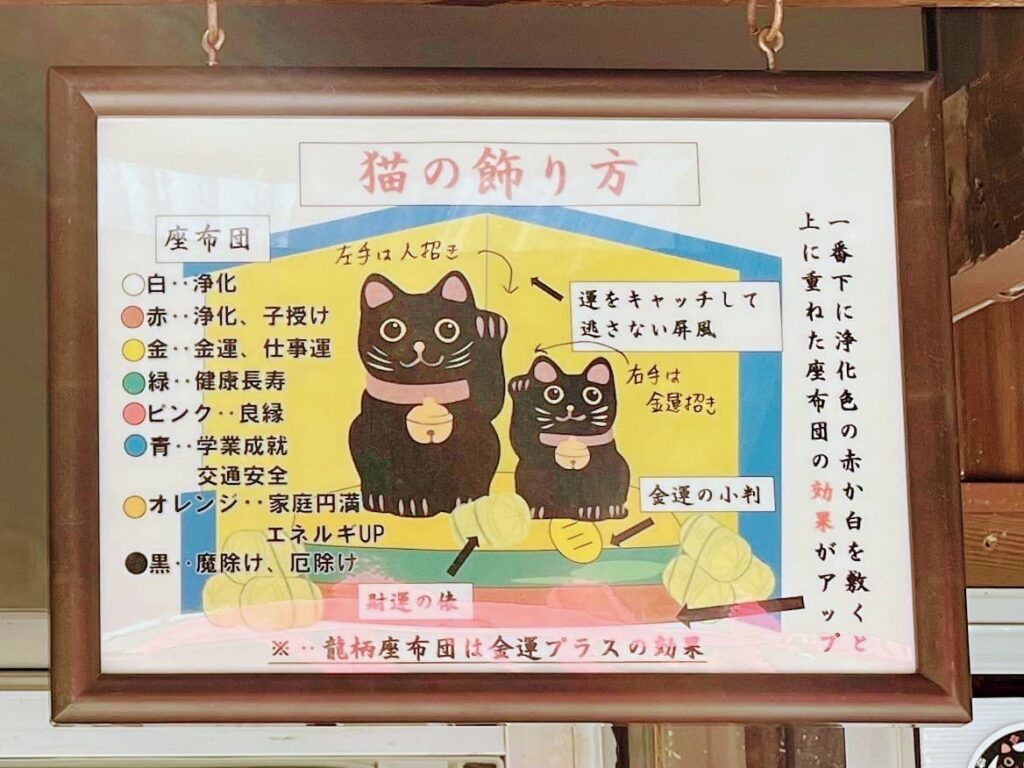 猫の飾り方
座布団
白‥浄化
赤‥浄化、子授け
金‥金運、仕事運
緑‥健康長寿
ピンク‥良縁
青‥学業成就
交通安全
オレンジ‥家庭円満
エネルギUP
黒‥魔除け、厄除け
左手は人招き
運をキャッチして
逃さない屏風
右手は
金運招き
金運の小判
財運の俵
一番下に浄化色の赤か白を敷くと
上に重ねた座布団の効果がアップ
※‥龍柄座布団は金運プラスの効果